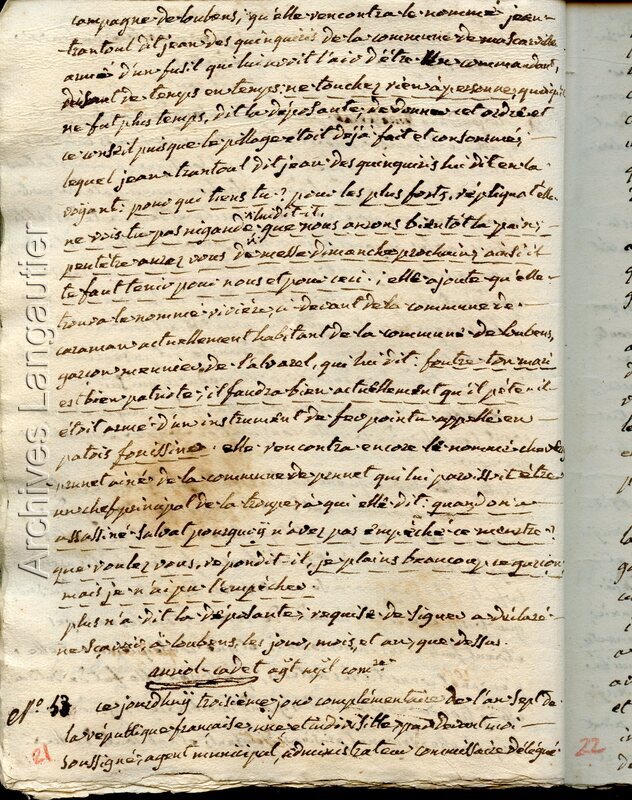 campagne de loubens; qu'elle rencontra le nommé jean
trantoul dit jean des quinquiris de la commune de mascarville
armé d'un fusil qui lui avoit l'air d'être un commandant,
disant de temps en temps: ne touchez rien à personne, quoiqu'il
ne fut plus temps, dit la déposante, de donner cet ordre et
ce conseil puisque le pillage étoit déjà fait et consommé;
lequel jean trantoul dit jean des quinquiris lui dit en la
voyant: pour qui tiens tu? pour les plus forts, répliqua t'elle.
ne vois tu pas nigaude, lui dit-il, que nous aurons bientôt la paix,
peutêtre aurez vous de messe dimanche prochain; ainsi il
te faut tenir pour nous et pour ceci; elle ajoute qu'elle
trouva le nommé rivière, ci devant de la commune de
caraman actuellement habitant de la commune de loubens,
garçon meunier de l'alvarel, qui lui dit: foutre ton mari
est bien patriote; il faudra bien actuellement qu'il pète; il
étoit armé d'un instrument de fer pointu appellé en
patois fouissine. elle rencontra encore le nommé
prunet ainé de la commune de prunet qui lui paroissoit être
un chef principal de la troupe, à qui elle dit: quand on a
assassiné salvat pourquoi n'avez pas empêché ce meurtre?
que voulez vous, répondit il, je plains beaucoup ce garçon
mais je n'ai pu l'empêcher.
plus n'a dit la déposante; requise de signer a déclaré
ne sçavoir, à loubens, les jour, mois, et an, que dessus.
auriol-cadet agt. mpl. comre.
N.° 53 ce jourdhuy troisième jour complémentaire de l'an sept de
la république française, une et indivisible, par devant moi
soussigné, agent municipal, administrateur commissaire délégué
21
22
Archives Langautier